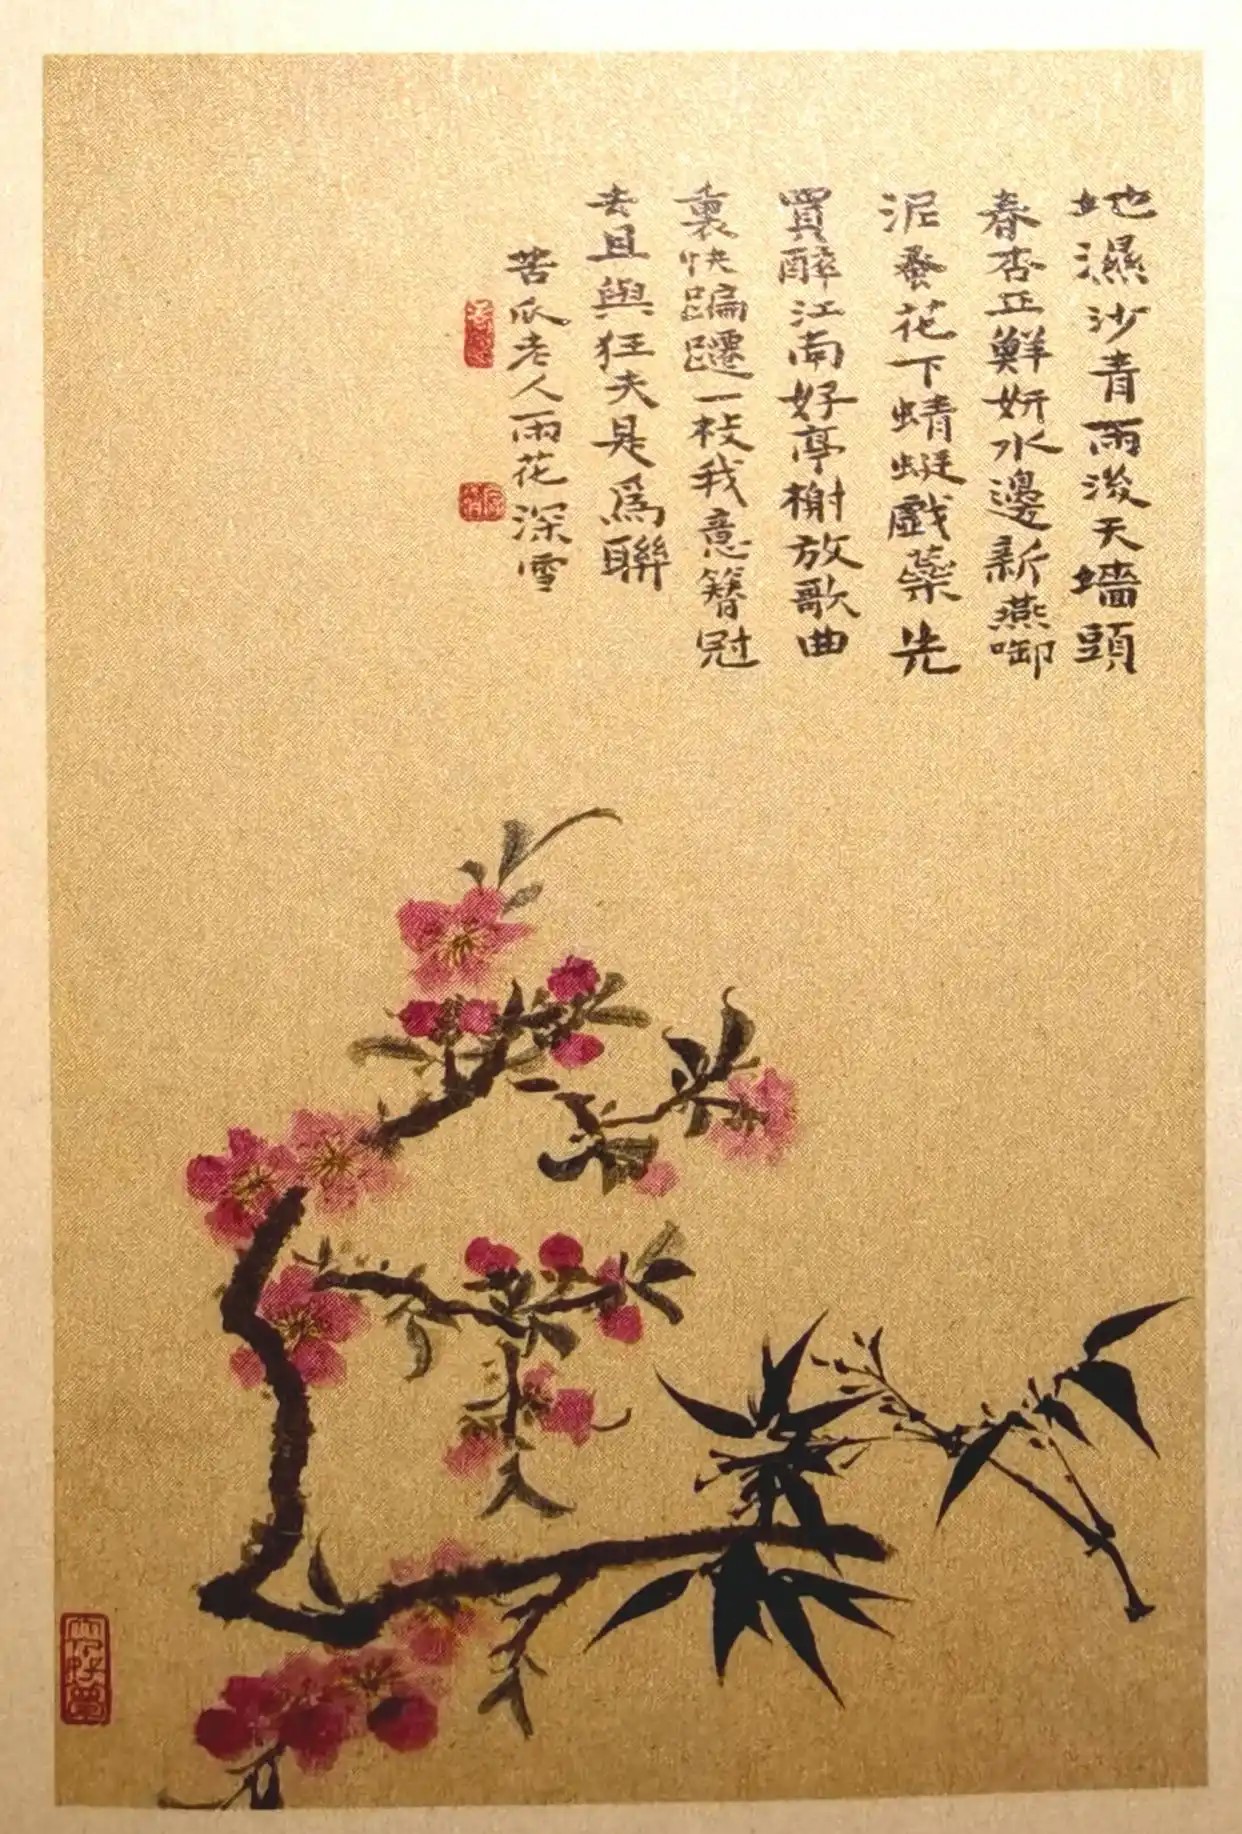 地濕沙青雨後天墻頭
春杏正鮮妍水邊新燕啣
泥蚤花下蜻蜓戲蘂先
買醉江南好亭榭放歌曲
裏快蹁躚一枝我意簪冠
去且與狂夫是爲聯
苦瓜老人雨花深雪